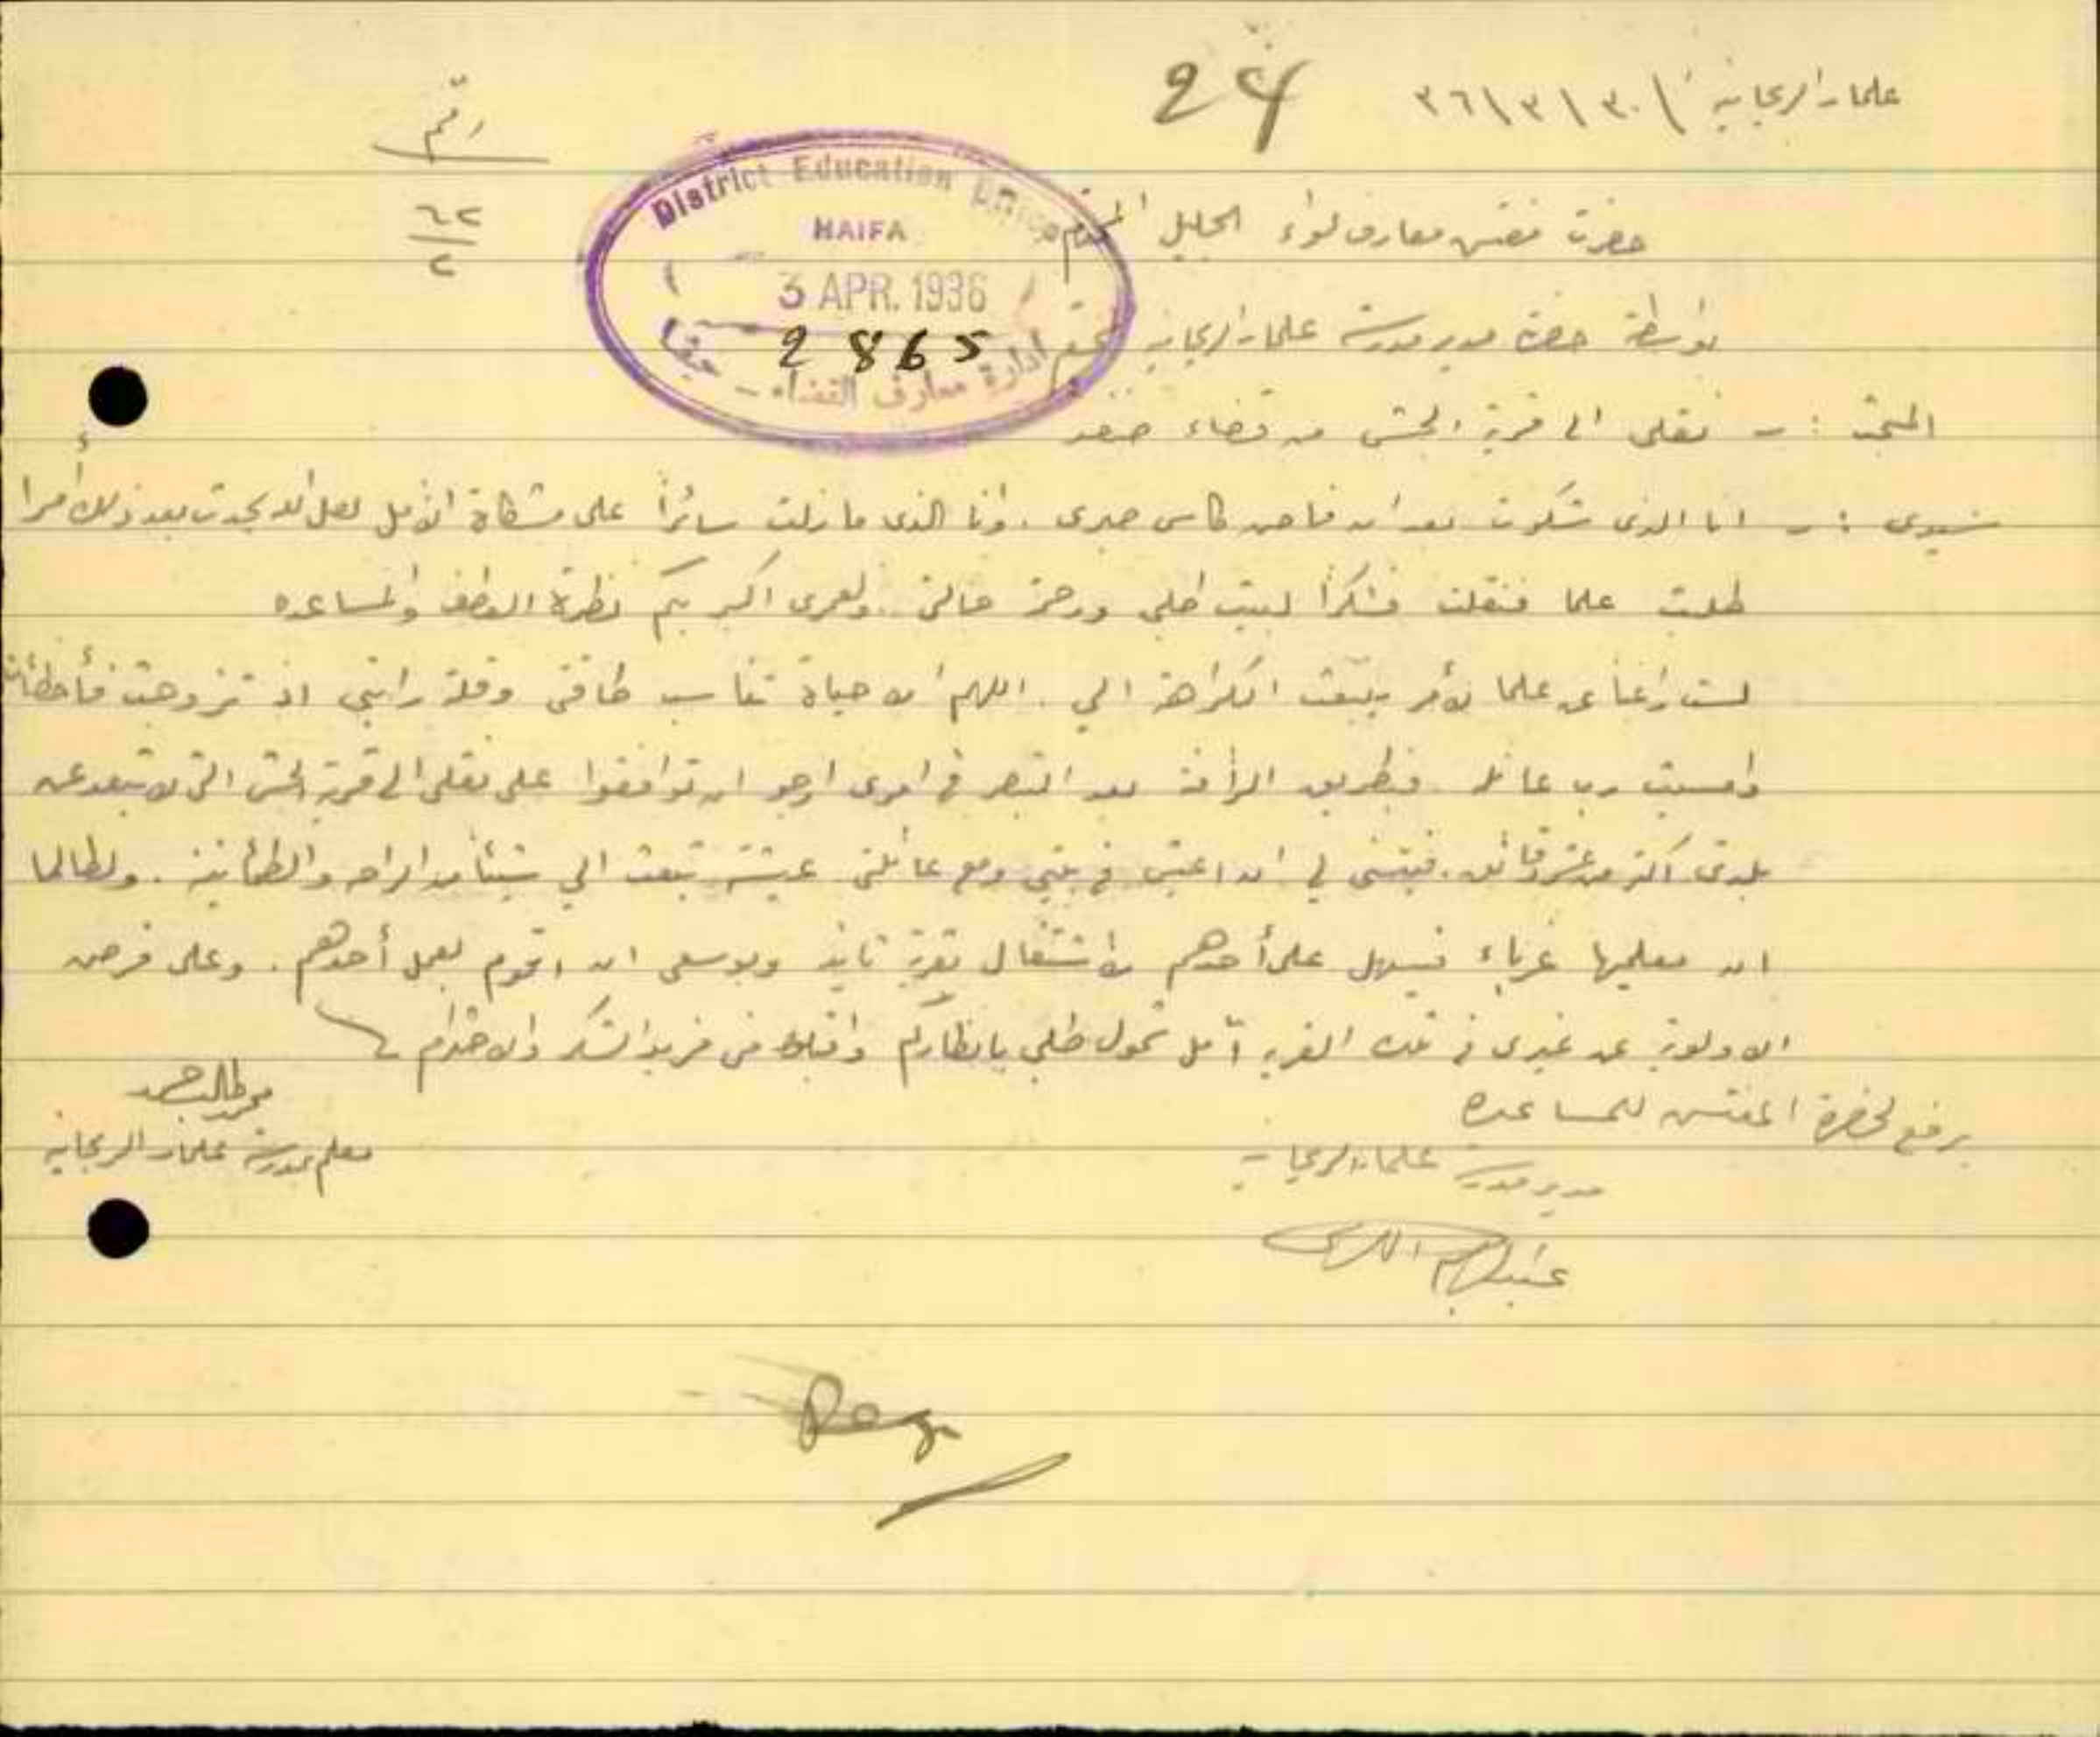 علما والريحانيه ٣٠/٣/٣٦
24
رقم
٦٢/٢
District Education Office
HAIFA
3 APR. 1936
2865
ادارة معارف القضاء - حيفا
حضرة مفتش معارف لواء الجليل المحترم
بواسطة حضرة مدير مدرسة علما والريحانيه المحترم
المبحث :- نقلي الى قرية الجش من قضاء صفد
سيدي :- انا الذي شكوت بعد ان فاض كاس صبري. وانا الذي ما زلت سائرا على مشكاة الأمل لعل الله يحدث بعد ذلك أمرا
طلبت علما فنقلت فشكرا لبيت طلبي ورحمة حالتي.. ولعمري اكبر بكم نظرة العطف والمساعده
لست راغبا عن علما لأمر يبعث الكراهة الي. اللهم الا حياة تناسب طاقتي وقلة راتبي اذ تزوجت فأخطأت
وامسيت رب عائله. فبطريق الرأفة بعد التبصر في امري ارجو ان توافقوا على نقلي الى قرية الجش التي لا تبعد عن
بلدتي اكثر من عشر دقائق. فيتسنى لي ان اعيش في بيتي ومع عائلتي عيشة تبعث الي شيئا من الراحه والطمأنينة. ولطالما
ان معلميها غرباء فيسهل على أحدهم الاشتغال بقرية ثانيه وبوسعي ان اقوم بعمل أحدهم. وعلى فرض
الاولوية عن غيري في تلك القريه آمل شمول طلبي بانظاركم واقبلوا مني مزيد الشكر والاحترام
محمد طالب
معلم بمدرسة علما والريحانيه
يرفع لحضرة المفتش للمساعده
مدير مدرسة علما والريحانيه